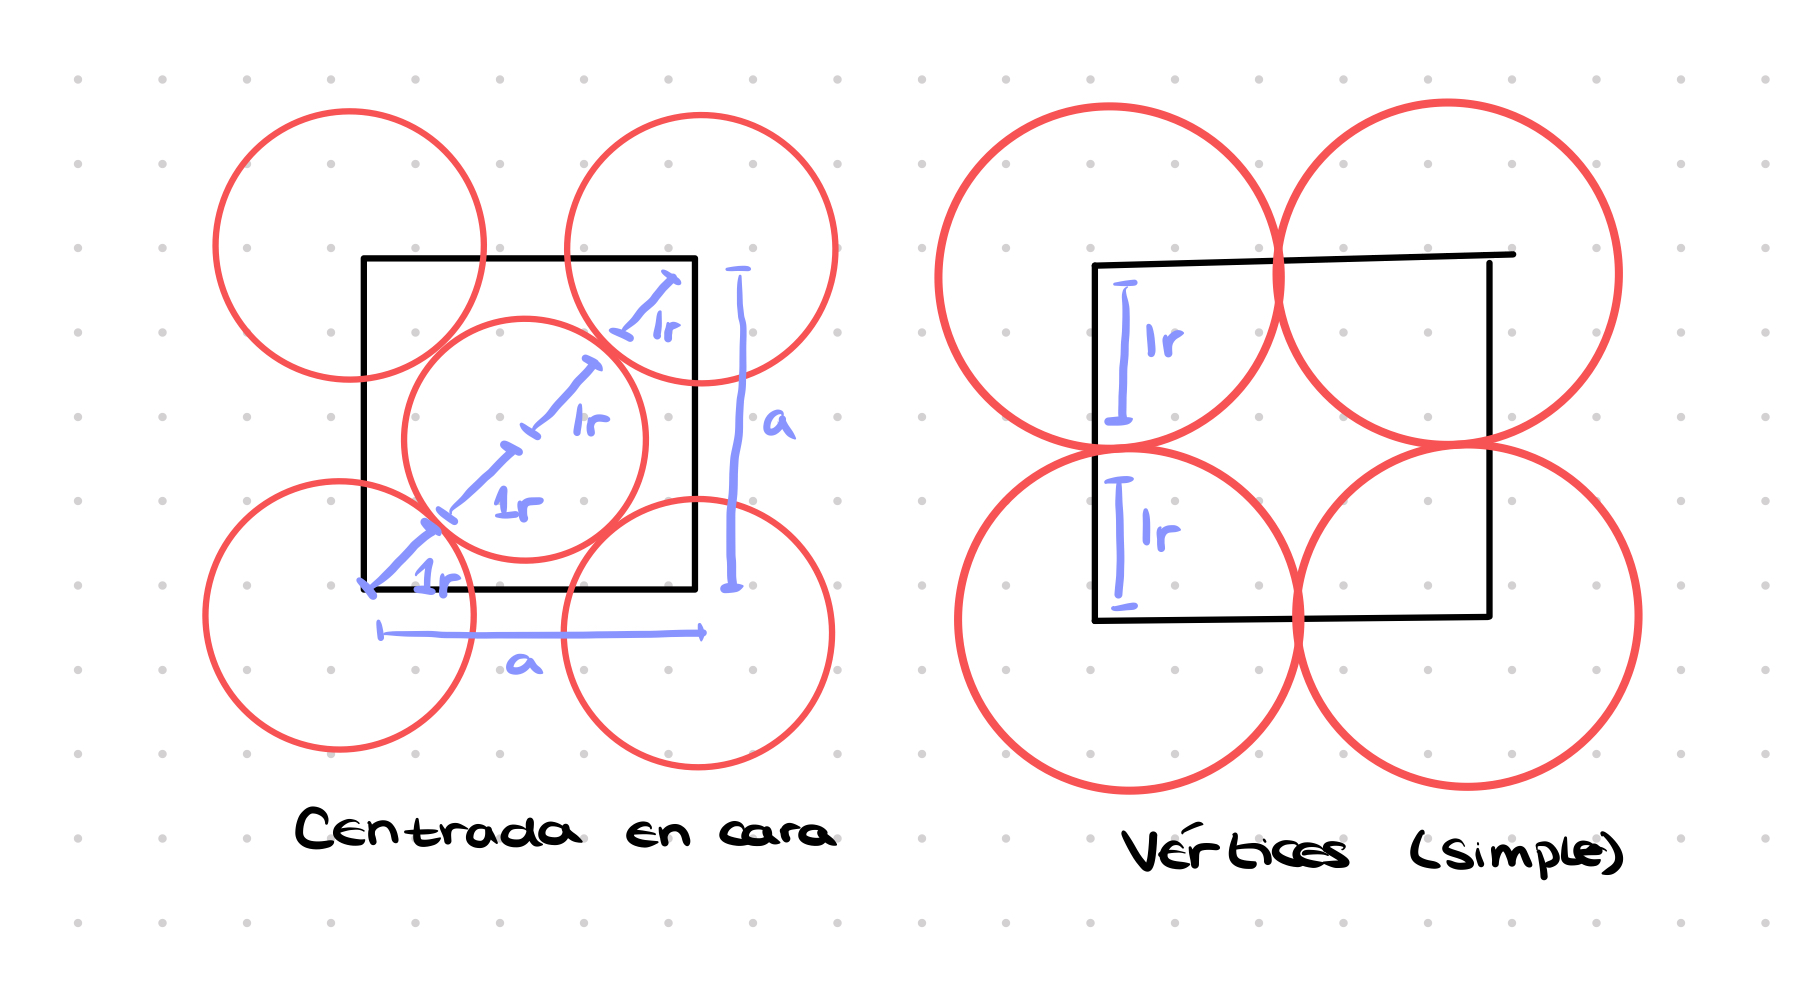 1r
1r
1r
1r
a
a
Centrada en cara
1r
1r
Vértices (simple)